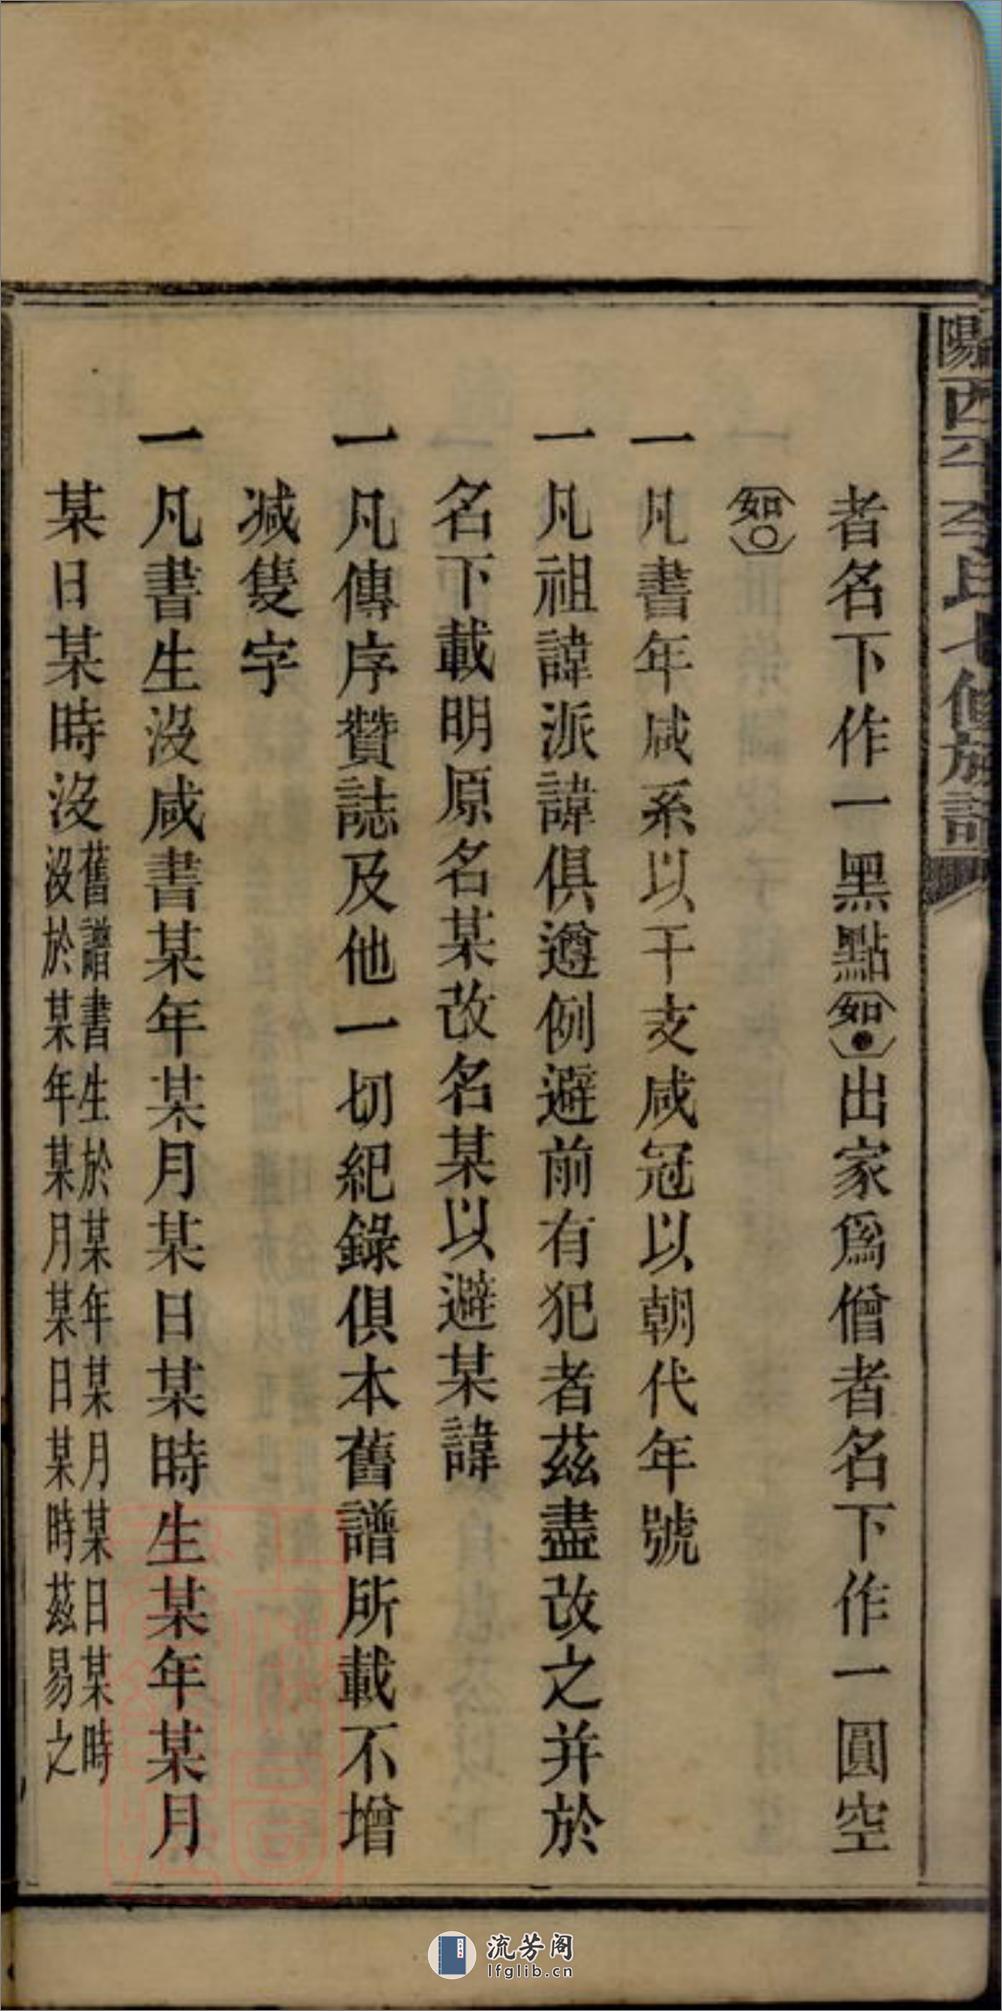 陽西平李氏七修族譜
者名下作一黑點〔如●〕出家爲僧者名下作一圓空
〔如○〕
一凡書年咸系以干支咸冠以朝代年號
一凡祖諱派諱俱遵例避前有犯者茲盡改之并於
名下載明原名某改名某以避某諱
一凡傳序贊誌及他一切紀錄俱本舊譜所載不增
减隻字
一凡書生沒咸書某年某月某日某時生某年某月
某日某時沒舊譜書生於某年某月某日某時
沒於某年某月某日某時茲易之
流芳阁
lfglib.cn